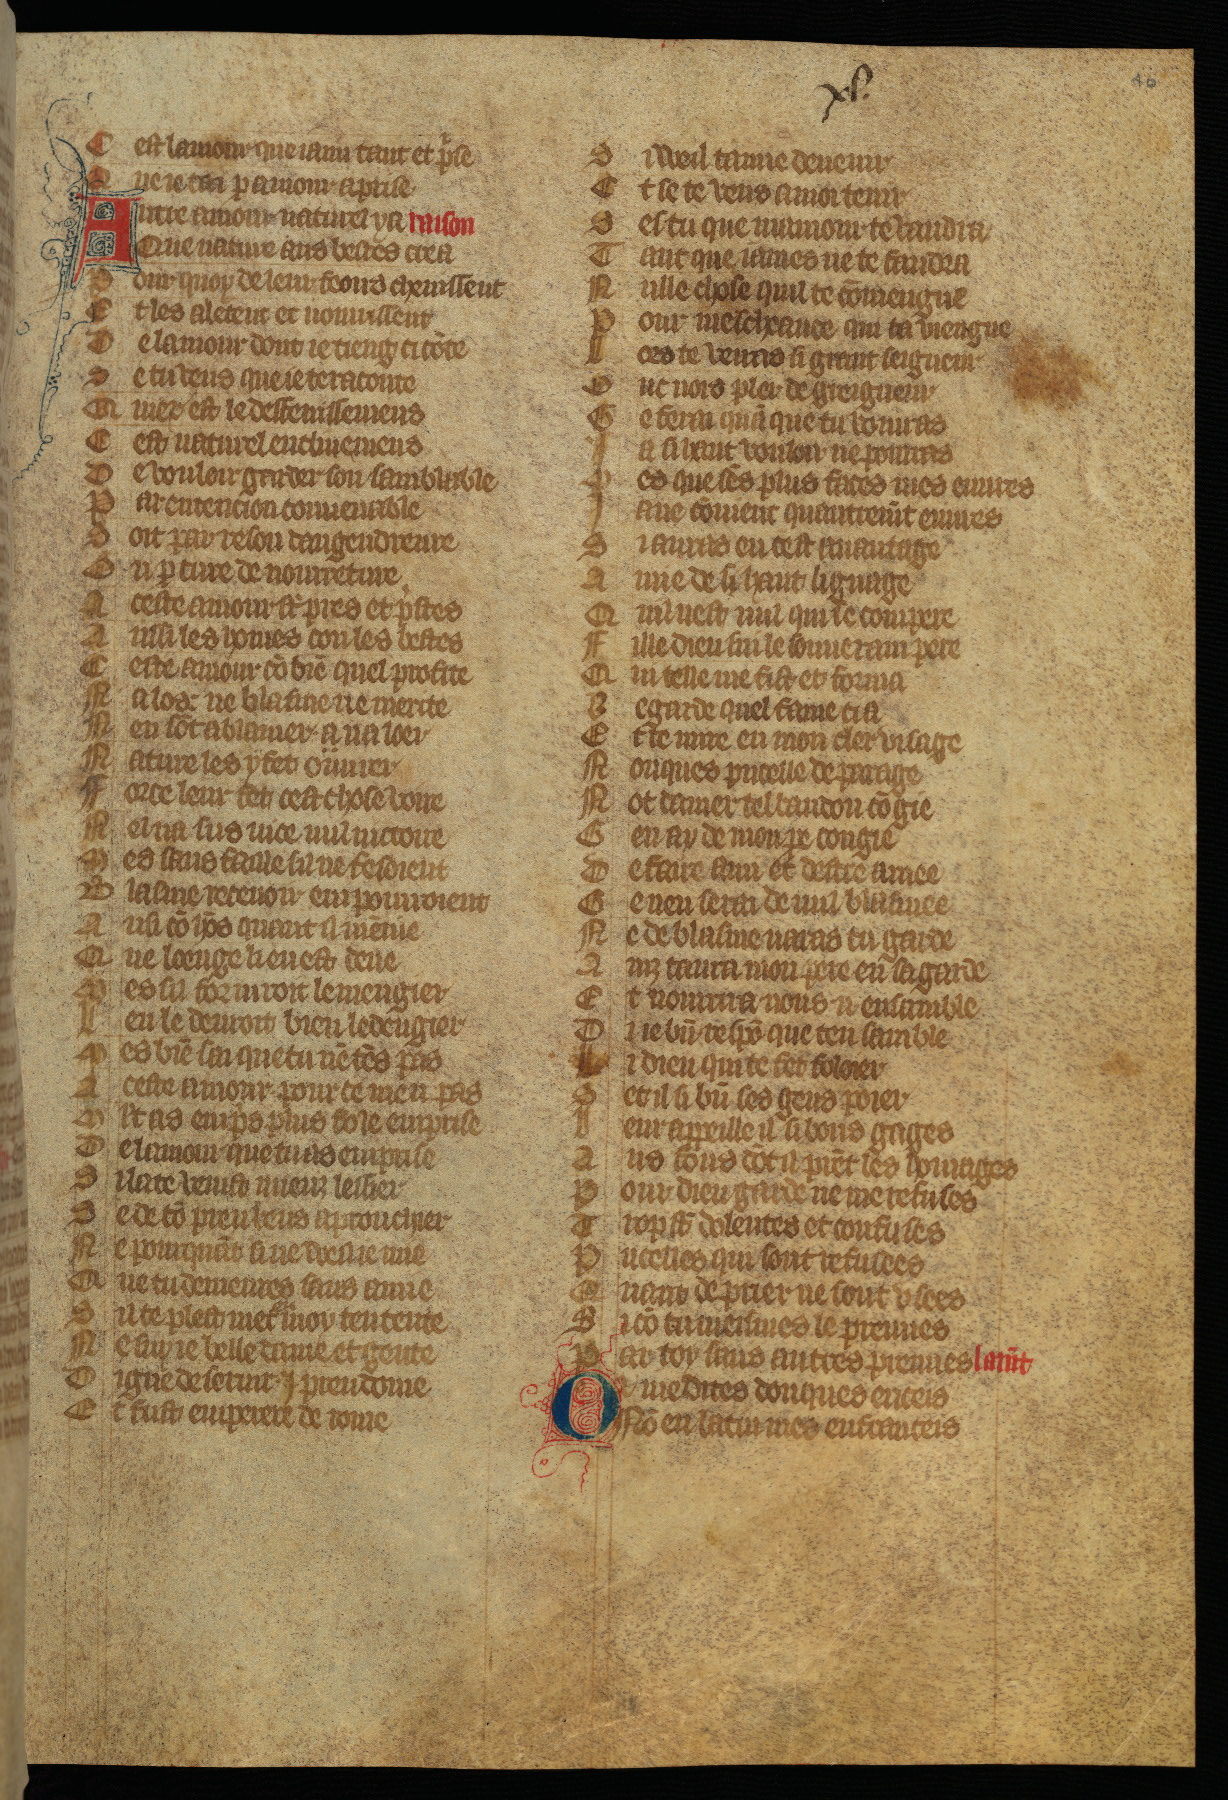 xl.
46
C est lamour que iaim tant et p̃se
Q ue ie tai p amour aprise
Autre amour naturel y a raison
Que nature aus bestes crea
P our quoy de leur feons cheuissent
E t les aletent et nourissent
D e lamour dont ie tieng ci cōte
S e tu veus que ie te raconte
Q uiex est le deffenissemens
C est naturel enclinemens
D e vouloir garder son samblable
P ar entencion conuenable
S oit par reson dangendreure
O u p cure de nourreture
A ceste amour st̃ pres et p̃stes
A ussi les hōmes con les bestes
C este amour cō biē quel profite
N a los ne blasme ne merite
N en sōt a blamer na loer
N ature les y fet ourner
F orce leur fet cest chose voire
N el na sus uice nul uictoire
M es sans faille sil ne fesoient
B lasme receuoir en pourroient
A usi cō hōs quant il mēiue
Q ue loenge li en est deue
M es sil foriuroit le mengier
L en le deuroit bien ledēgier
M es biē sai que tu nētēs pas
A ceste amour pour ce men pas
M lt as empris plus fole emprise
D e lamour que tu as emprise
S i la te venist mieuz lessier
S e de tō preu veus aprouchier
N e pourquāt si ne veil ie mie
Q ue tu demeures sans amie
S il te plest met a moy tentente
N e suy ie belle dame et gente
D igne de seruir .i. preudome
E t fust emperere de rome
S i weil tamie deuenir
E t se te veus a moi tenir
S es tu que mamour te vaudra
T ant que iames ne te faudra
N ulle chose quil te cōuiengne
P our mescheance qui ta viengne
L ors te verras si grant seigneur
Q uc nors pler de greigneur
G e ferai quā que tu vourras
I a si haut vouloir ne pourras
M es que sēs plus faces mes euures
I a ne cōuient quautremt̄ euures
S i auras en cest auantage
A mie de si haut lignage
Q uil nest nul qui se compere
F ille dieu sui le souuerain pere
Q ui telle me fist et forma
R egarde quel fame ci a
E t te mire en mon cler visage
N onques pucelle de parage
N ot damer tel bandon cō gie
G en ay de mon pe congie
D e ffaire ami et destre amee
G e nen serai de nul blasmee
N e de blasme naras tu garde
A inz taura mon pere en sa garde
E t nourrira nous .ii. ensamble
D i ie bn̄ respō que ten samble
L i dieu qui te fet foloier
S et il si bn̄ ses gens poier
L eur appeille il si bons gages
A us fous dōt il prēt les hōmages
P our dieu garde ne me refuses
T rop st̄ dolentes et confuses
P ucelles qui sont refusees
Q uant de prier ne sont vsees
S i cō tu meismes le prennes
P ar toy sans autres preuues lamt̄
Or me dites donques enceis
Nō en latin mes en franceis